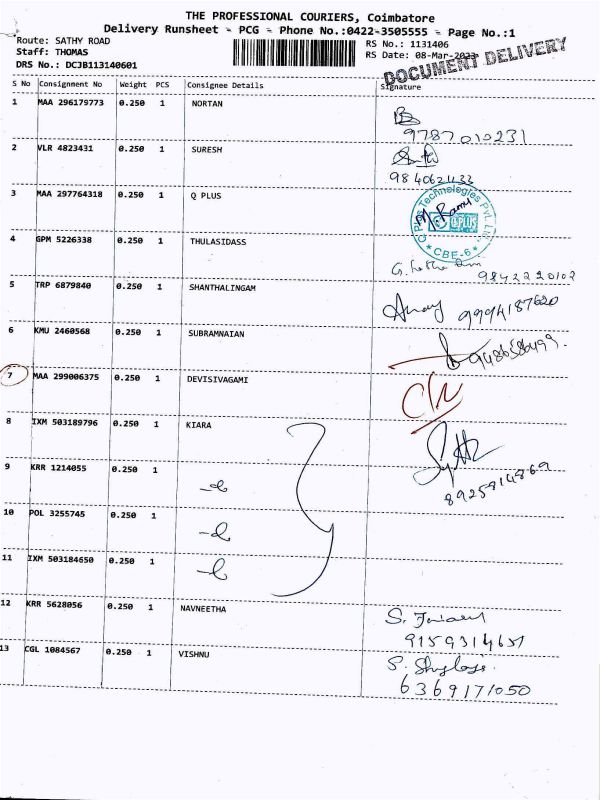 THE PROFESSIONAL COURIERS, Coimbatore
Delivery Runsheet - PCG - Phone No.:0422-3505555 - Page No.:1
Route: SATHY ROAD
Staff: THOMAS
DRS No.: DCJB113140601
RS No.: 1131406
RS Date: 08-Mar-2023
DOCUMENT DELIVERY
S No Consignment No Weight PCS Consignee Details Signature
1 MAA 296179773 0.250 1 NORTAN
9787010231
2 VLR 4823431 0.250 1 SURESH
9840621133
3 MAA 297764318 0.250 1 Q PLUS
Q Plus Technologies Pvt. Ltd.
Q PLUS
* CBE-6 *
4 GPM 5226338 0.250 1 THULASIDASS
9842220102
5 TRP 6879840 0.250 1 SHANTHALINGAM
9994187620
6 KMU 2460568 0.250 1 SUBRAMNAIAN
9486586499
7 MAA 299006375 0.250 1 DEVISIVAGAMI
8 IXM 503189796 0.250 1 KIARA
8925814869
9 KRR 1214055 0.250 1
10 POL 3255745 0.250 1
11 IXM 503184650 0.250 1
12 KRR 5628056 0.250 1 NAVNEETHA
9159314651
13 CGL 1084567 0.250 1 VISHNU
6369171050